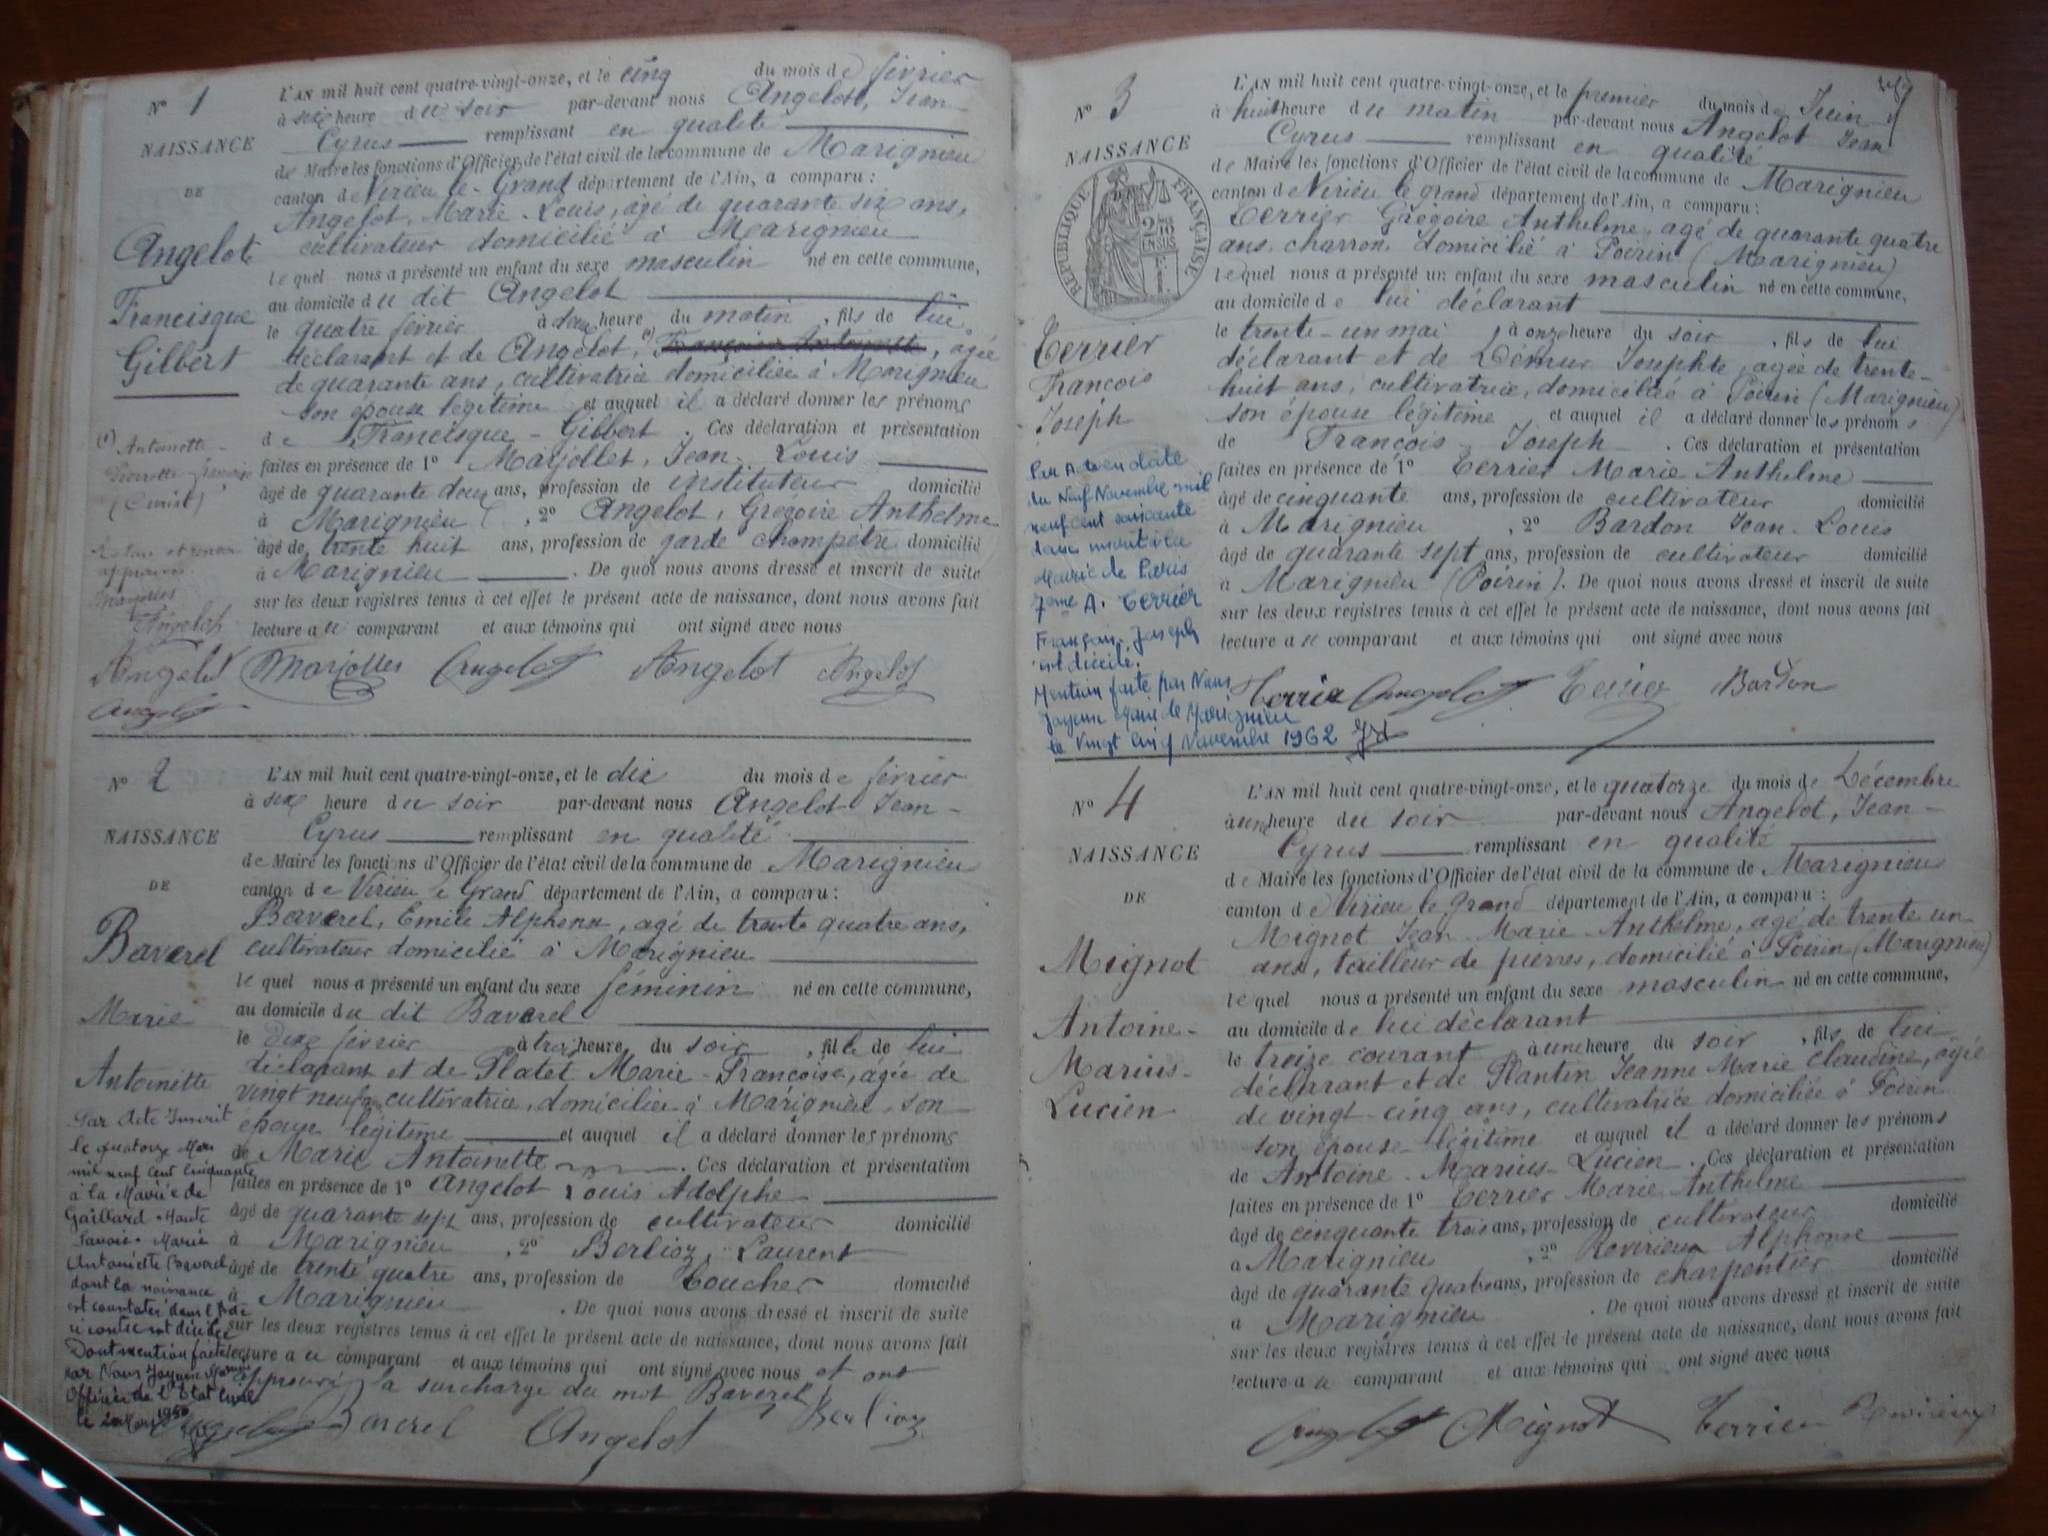 N° 1
NAISSANCE
DE
Angelot
Francisque
Gilbert
L'AN mil huit cent quatre-vingt-onze, et le cinq du mois de février
à six heure du soir par-devant nous Angelot, Jean
Cyrus remplissant en qualité
de Maire les fonctions d'Officier de l'état civil de la commune de Marignieu
canton de Virieu le-Grand département de l'Ain, a comparu :
Angelot, Marie-Louis, agé de quarante six ans,
cultivateur domicilié à Marignieu
lequel nous a présenté un enfant du sexe masculin né en cette commune,
au domicile du dit Angelot
le quatre février à heure du matin, fils de lui
déclarant et de Angelot, (1) agée
de quarante ans, cultivatrice domiciliée à Marignieu
son épouse légitime et auquel il a déclaré donner les prénoms
de Francisque-Gilbert. Ces déclaration et présentation
faites en présence de 1° Marjollet, Jean-Louis
âgé de quarante deux ans, profession de instituteur domicilié
à Marignieu, 2° Angelot, Grégoire Anthelme
âgé de trente huit ans, profession de garde champêtre domicilié
à Marignieu. De quoi nous avons dressé et inscrit de suite
sur les deux registres tenus à cet effet le présent acte de naissance, dont nous avons fait
lecture au comparant et aux témoins qui ont signé avec nous
(1) Antoinette
Angelot
Angelot Marjollet Angelot Angelot Angelot
Angelot
N° 2
NAISSANCE
DE
Baverel
Marie
Antoinette
L'AN mil huit cent quatre-vingt-onze, et le dix du mois de février
à six heure du soir par-devant nous Angelot Jean-
Cyrus remplissant en qualité
de Maire les fonctions d'Officier de l'état civil de la commune de Marignieu
canton de Virieu le Grand département de l'Ain, a comparu :
Baverel, Emile Alphonse, agé de trente quatre ans,
cultivateur domicilié à Marignieu
lequel nous a présenté un enfant du sexe féminin né en cette commune,
au domicile du dit Baverel
le dix février à trois heure du soir, fille de lui
déclarant et de Platet Marie-Françoise, agée de
vingt neuf cultivatrice, domiciliée à Marignieu, son
épouse légitime et auquel il a déclaré donner les prénoms
de Marie Antoinette. Ces déclaration et présentation
faites en présence de 1° Angelot Louis Adolphe
âgé de quarante sept ans, profession de cultivateur domicilié
à Marignieu, 2° Berlioz, Laurent
âgé de trente quatre ans, profession de boucher domicilié
à Marignieu. De quoi nous avons dressé et inscrit de suite
sur les deux registres tenus à cet effet le présent acte de naissance, dont nous avons fait
lecture au comparant et aux témoins qui ont signé avec nous et ont
approuvé la surcharge du mot Baverel
Par acte Inscrit
le quatorze Mars
mil neuf cent cinquante
à la Mairie de
Gaillard Haute
Savoie Marie
Antoinette Baverel
dont la naissance
est constatée dans l'acte
ci contre est décédée
Dont mention faite
par Nous Joyeux
Officier de l'Etat Civil
le 1950
Angelot Baverel Angelot Berlioz
N° 3
NAISSANCE
RÉPUBLIQUE FRANÇAISE
EN SUS
Terrier
François
Joseph
L'AN mil huit cent quatre-vingt-onze, et le premier du mois de Juin
à huit heure du matin par-devant nous Angelot Jean
Cyrus remplissant en qualité
de Maire les fonctions d'Officier de l'état civil de la commune de Marignieu
canton de Virieu le grand département de l'Ain, a comparu :
Terrier Grégoire Anthelme, agé de quarante quatre
ans, charron, domicilié à Poirin (Marignieu)
lequel nous a présenté un enfant du sexe masculin né en cette commune,
au domicile de lui déclarant
le trente-un mai, à onze heure du soir, fils de lui
déclarant et de Démur Josephte, agée de trente-
huit ans, cultivatrice, domiciliée à Poirin (Marignieu)
son épouse légitime et auquel il a déclaré donner les prénoms
de François Joseph. Ces déclaration et présentation
faites en présence de 1° Terrier Marie Anthelme
âgé de cinquante ans, profession de cultivateur domicilié
à Marignieu, 2° Bardon Jean-Louis
âgé de quarante sept ans, profession de cultivateur domicilié
à Marignieu (Poirin). De quoi nous avons dressé et inscrit de suite
sur les deux registres tenus à cet effet le présent acte de naissance, dont nous avons fait
lecture au comparant et aux témoins qui ont signé avec nous
Par Acte en date
du Neuf Novembre mil
neuf cent soixante
deux inscrit à la
Mairie de Paris
7eme A. Terrier
François, Joseph
est décédé.
Mention faite par Nous
Joyeux Maire de Marignieu
le Vingt Cinq Novembre 1962
Terrier Angelot Terrier Bardon
N° 4
NAISSANCE
DE
Mignot
Antoine-
Marius-
Lucien
L'AN mil huit cent quatre-vingt-onze, et le quatorze du mois de Décembre
à une heure du soir par-devant nous Angelot, Jean-
Cyrus remplissant en qualité
de Maire les fonctions d'Officier de l'état civil de la commune de Marignieu
canton de Virieu le grand département de l'Ain, a comparu :
Mignot Jean-Marie-Anthelme, agé de trente un
ans, tailleur de pierres, domicilié à Poirin (Marignieu)
lequel nous a présenté un enfant du sexe masculin né en cette commune,
au domicile de lui déclarant
le treize courant à une heure du soir, fils de lui
déclarant et de Plantin Jeanne Marie Claudine, agée
de vingt-cinq ans, cultivatrice domiciliée à Poirin
son épouse légitime et auquel il a déclaré donner les prénoms
de Antoine-Marius-Lucien. Ces déclaration et présentation
faites en présence de 1° Terrier Marie Anthelme
âgé de cinquante trois ans, profession de cultivateur domicilié
à Marignieu, 2° Revirieux Alphonse
âgé de quarante quatre ans, profession de charpentier domicilié
à Marignieu. De quoi nous avons dressé et inscrit de suite
sur les deux registres tenus à cet effet le présent acte de naissance, dont nous avons fait
lecture au comparant et aux témoins qui ont signé avec nous
Angelot Mignot Terrier Revirieux